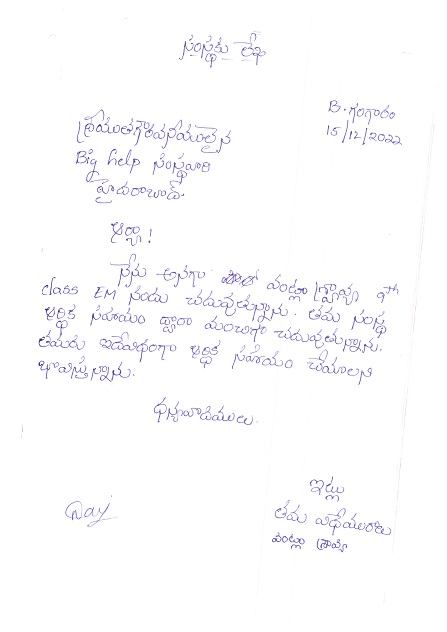 సంస్థకు లేఖ
B. గంగారం
15/12/2022
శ్రీయుతగౌరవనీయులైన
Big help సంస్థవారి
హైదరాబాద్.
ఆర్యా!
నేను అనగా వంట్లూ శ్రావ్య
class EM నందు చదువుతున్నాను. తమ సంస్థ
ఆర్థిక సహాయం ద్వారా మంచిగా చదువుతున్నాను.
తమరు ఇదేవిధంగా ఆర్థిక సహాయం చేయాలని
భావిస్తున్నాను.
ధన్యవాదములు.
ఇట్లు
తమ విధేయురాలు
వంట్లూ శ్రావ్య